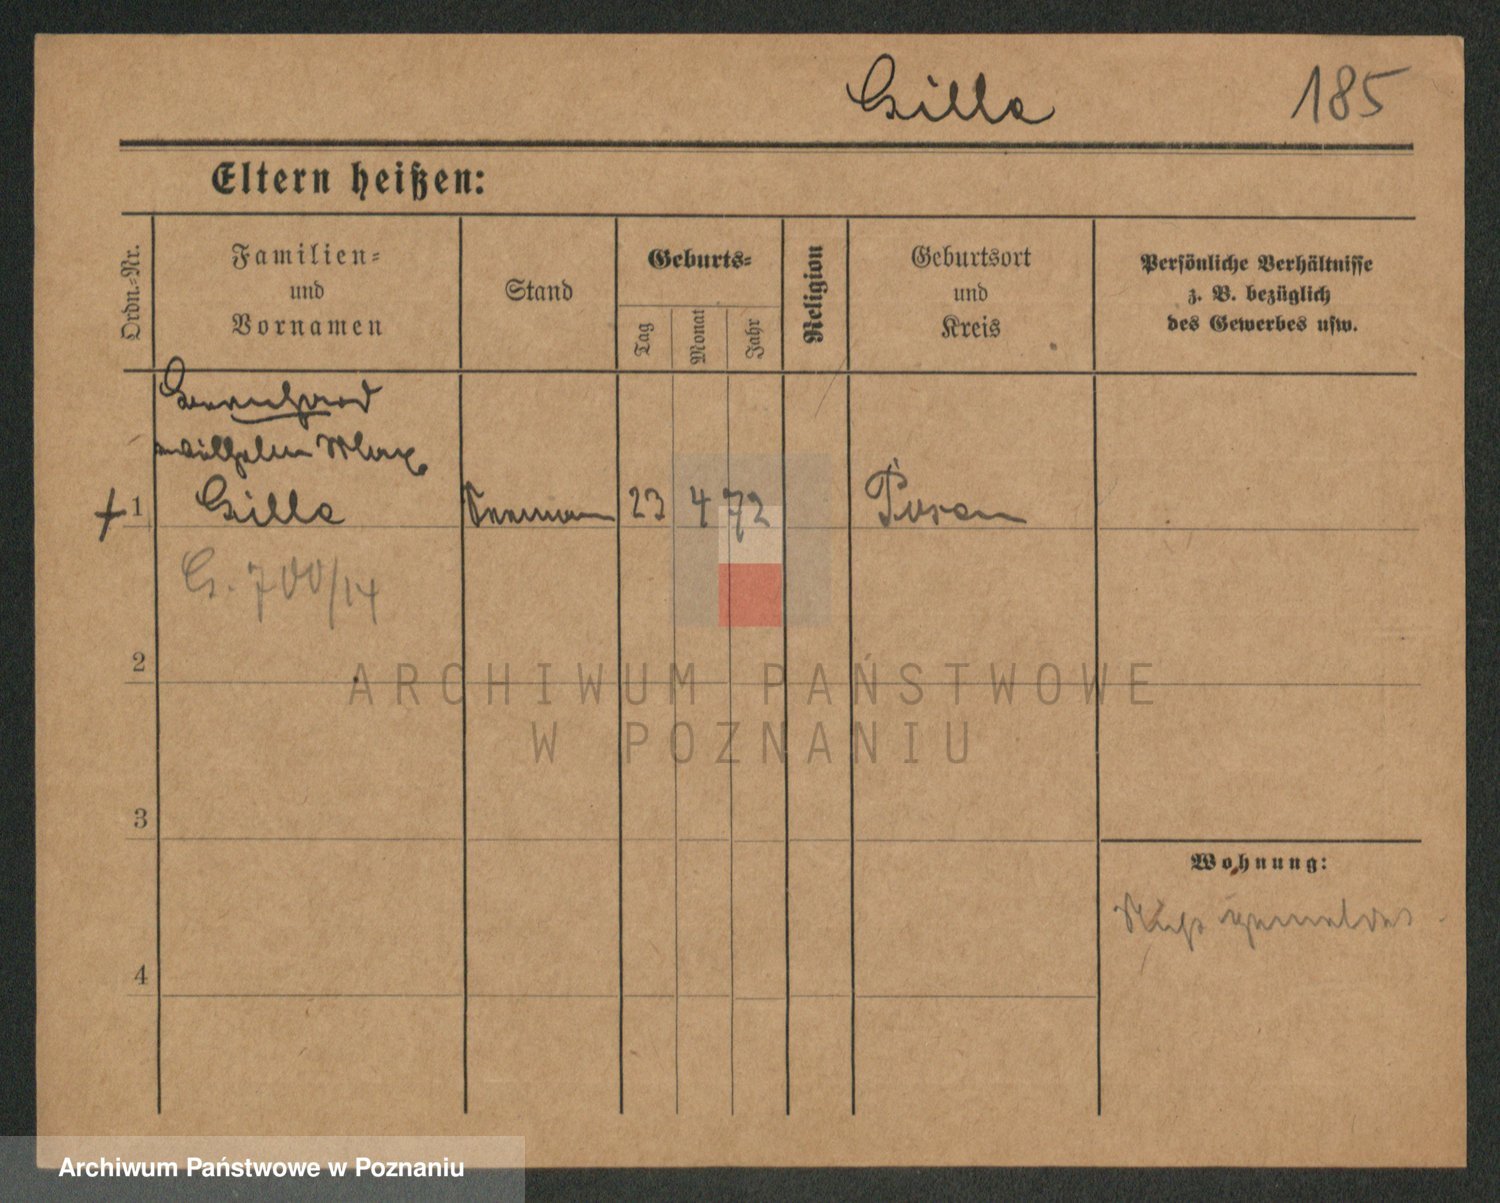 Gilla 185
Eltern heißen:
Ordn.=Nr.
Familien=
und
Vornamen
Stand
Geburts=
Tag
Monat
Jahr
Religion
Geburtsort
und
Kreis
Persönliche Verhältnisse
z. B. bezüglich
des Gewerbes usw.
Bernhard
Wilhelm Max
1 Gilla Seemann 23 4 72 Posen
G. 700/14
2
3
4
Wohnung:
Nicht gemeldet
ARCHIWUM PAŃSTWOWE
W POZNANIU
Archiwum Państwowe w Poznaniu